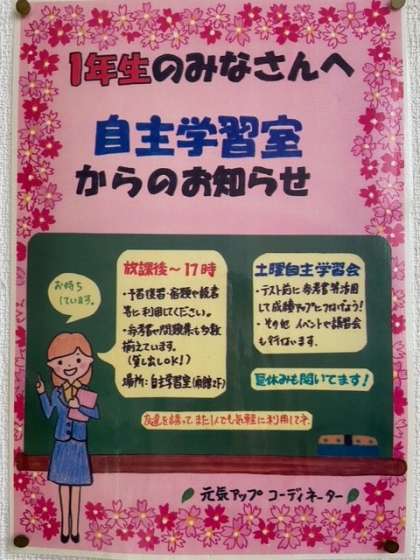 1年生のみなさんへ
自主学習室
からのお知らせ
お待ち
しています。
放課後～17時
・予習復習・宿題や読書
等に利用してください。
・参考書や問題集も多数
揃えています。
(貸し出しOK!)
場所:自主学習室(南館2F)
土曜自主学習会
・テスト前に参考書等活用
して成績アップにつなげよう!
・その他 イベントや講習会
も行ないます。
夏休みも開いてます!
友達を誘って、また1人でも気軽に利用してネ
元気アップ コーディネーター